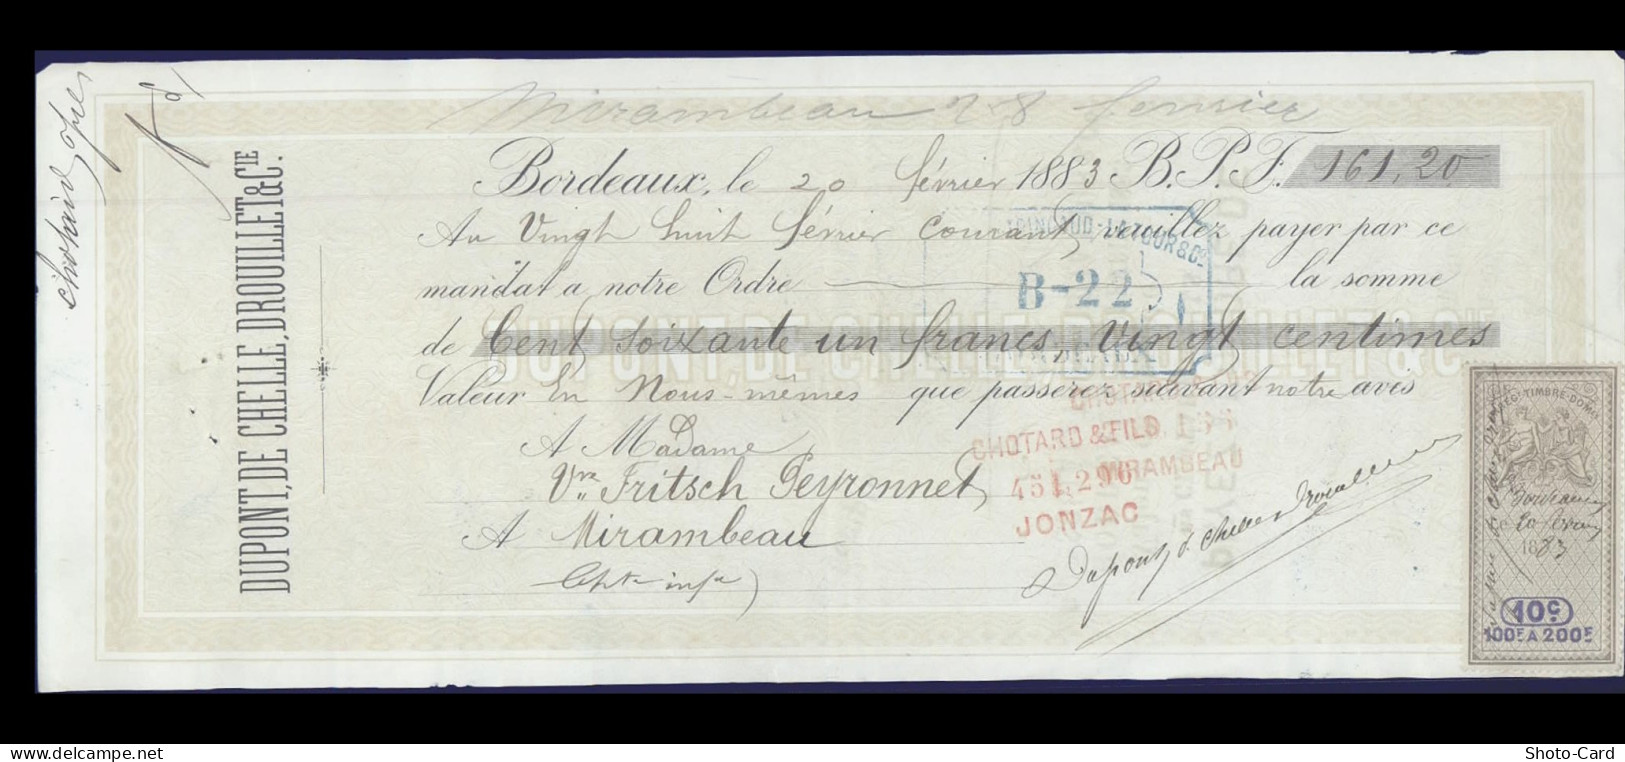 Mirambeau 28 fevrier
DUPONT, DE CHELLE, DROUILLET & CIE.
Bordeaux, le 20 février 1883 B.P.F. 161,20
Au Vingt huit février courant, veuillez payer par ce
mandat à notre Ordre la somme
de Cent Soixante un francs Vingt centimes
Valeur En Nous-mêmes que passerez suivant notre avis
A Madame
Vve Fritsch Peyronnet
A Mirambeau
LATOUR & Co
B-22
DUPONT, DE CHELLE, DROUILLET & Cie
CHOTARD & FILS
MIRAMBEAU
451,296
JONZAC
Dupont de Chelle Drouillet
TIMBRE-DOM
20
1883
10c
100F A 200F
www.delcampe.net
Shoto-Card